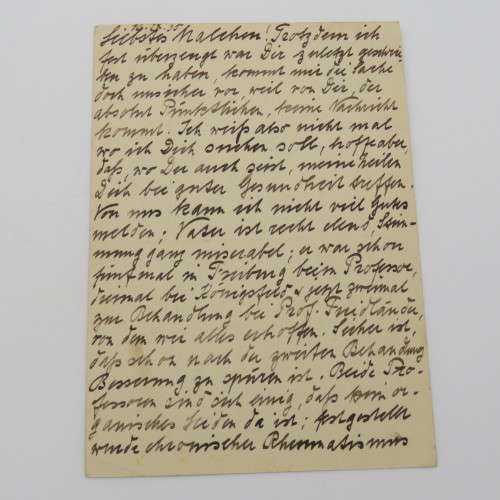 Liebstes Malchen! Trotzdem ich
fest überzeugt war Dir zuletzt geschrie-
ben zu haben, kommt mir die Sache
doch unsicher vor, weil von Dir, der
absolut Pünktlichen, keine Nachricht
kommt. Ich weiß also nicht mal
wo ich Dich suchen soll, hoffe aber,
daß, wo Du auch seist, meine Zeilen
Dich bei guter Gesundheit treffen.
Von uns kann ich nicht viel Gutes
melden; Vater ist recht elend, Stim-
mung ganz miserabel; er war schon
fünfmal in Freiburg beim Professor,
dreimal bei Königsfeld & jetzt zweimal
zur Behandlung bei Prof. Friedländer,
von dem wir alles erhoffen. Sicher ist,
daß schon nach der zweiten Behandlung
Besserung zu spüren ist. Beide Pro-
fessoren sind sich einig, daß kein or-
ganisches Leiden da ist; festgestellt
wurde chronischer Rheumatismus